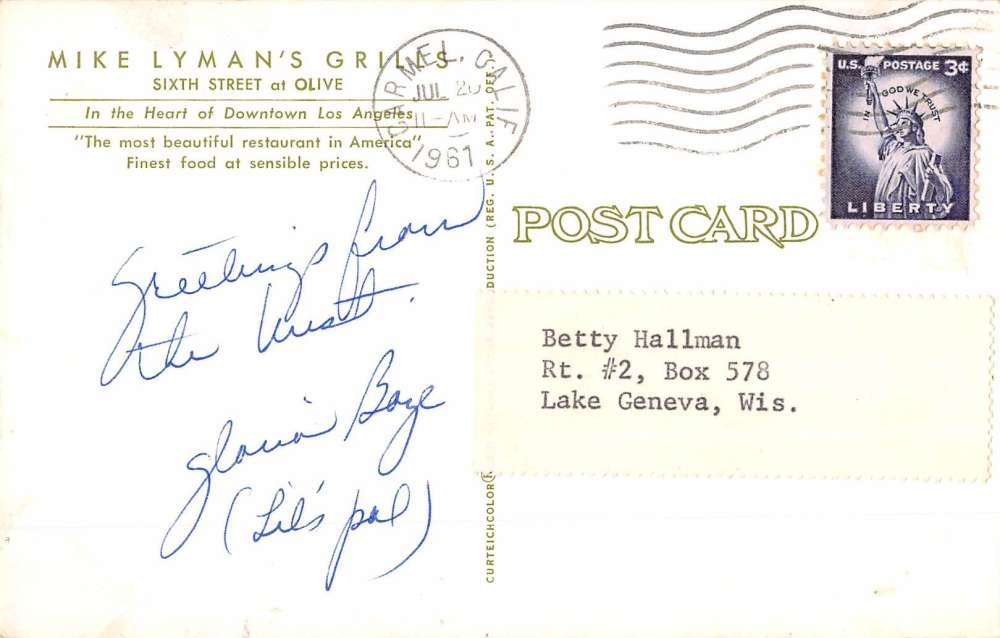 MIKE LYMAN'S GRILLS
SIXTH STREET at OLIVE
In the Heart of Downtown Los Angeles
"The most beautiful restaurant in America"
Finest food at sensible prices.
CARMEL, CALIF
JUL
11-AM
1961
U.S. POSTAGE 3¢
IN GOD WE TRUST
LIBERTY
POST CARD
Greetings from
the West.
Gloria
(Lil's pal)
Betty Hallman
Rt. #2, Box 578
Lake Geneva, Wis.
CURTEICHCOLOR DUCTION (REG. U. S. A. PAT. OFF.